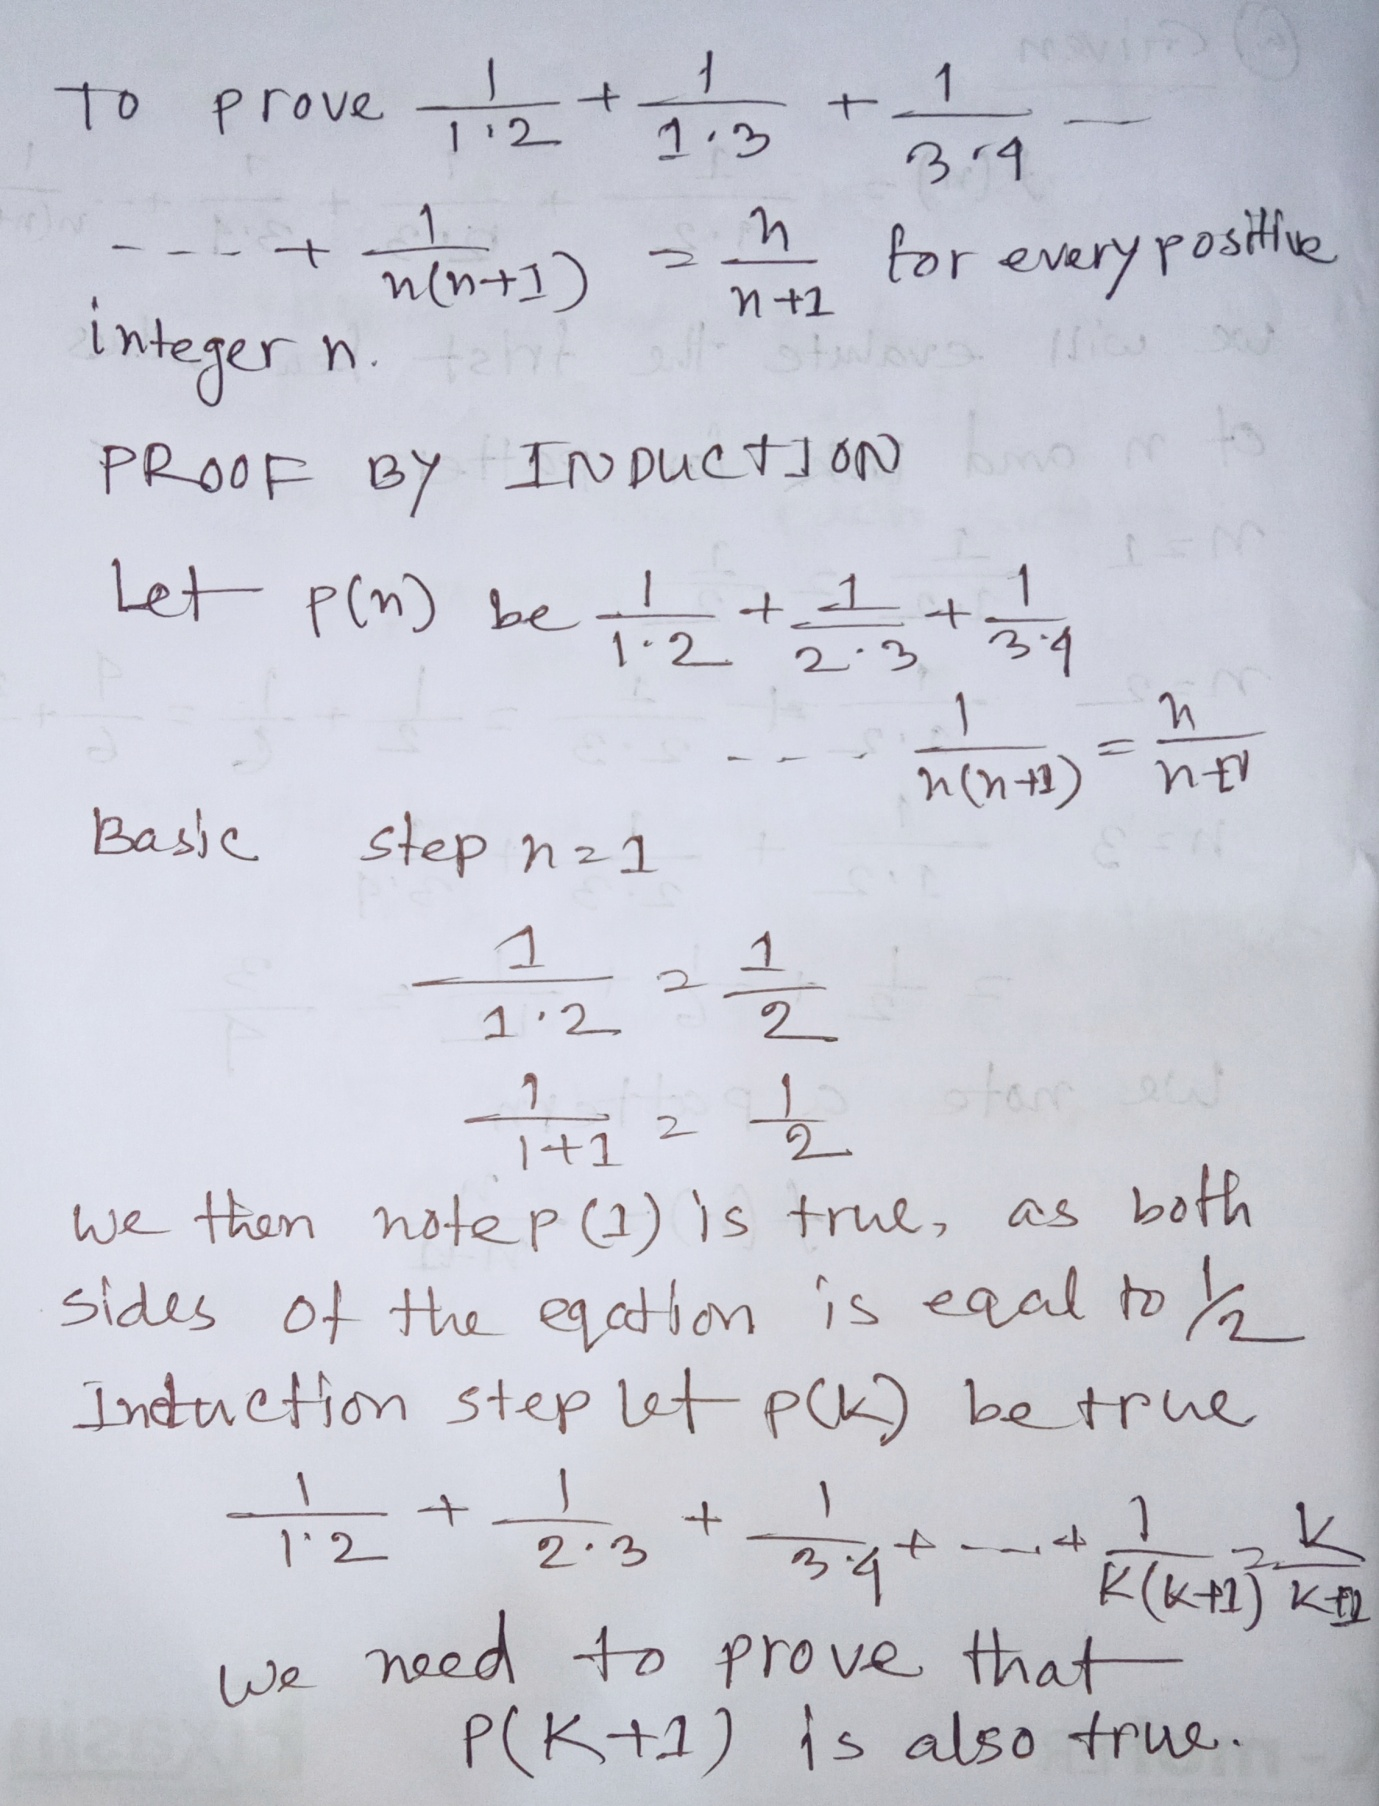 To prove 1/1·2 + 1/1·3 + 1/3·4 —
---- + 1/n(n+1) = n/n+1 for every positive
integer n.
PROOF BY INDUCTION
Let p(n) be 1/1·2 + 1/2·3 + 1/3·4
---- 1/n(n+1) = n/n+1
Basic step n=1
1/1·2 = 1/2
1/1+1 = 1/2
we then note p(1) is true, as both
sides of the eqation is eqal to 1/2
Induction step let p(k) be true
1/1·2 + 1/2·3 + 1/3·4 + ---- + 1/K(K+1) = K/K+1
we need to prove that
P(K+1) is also true.